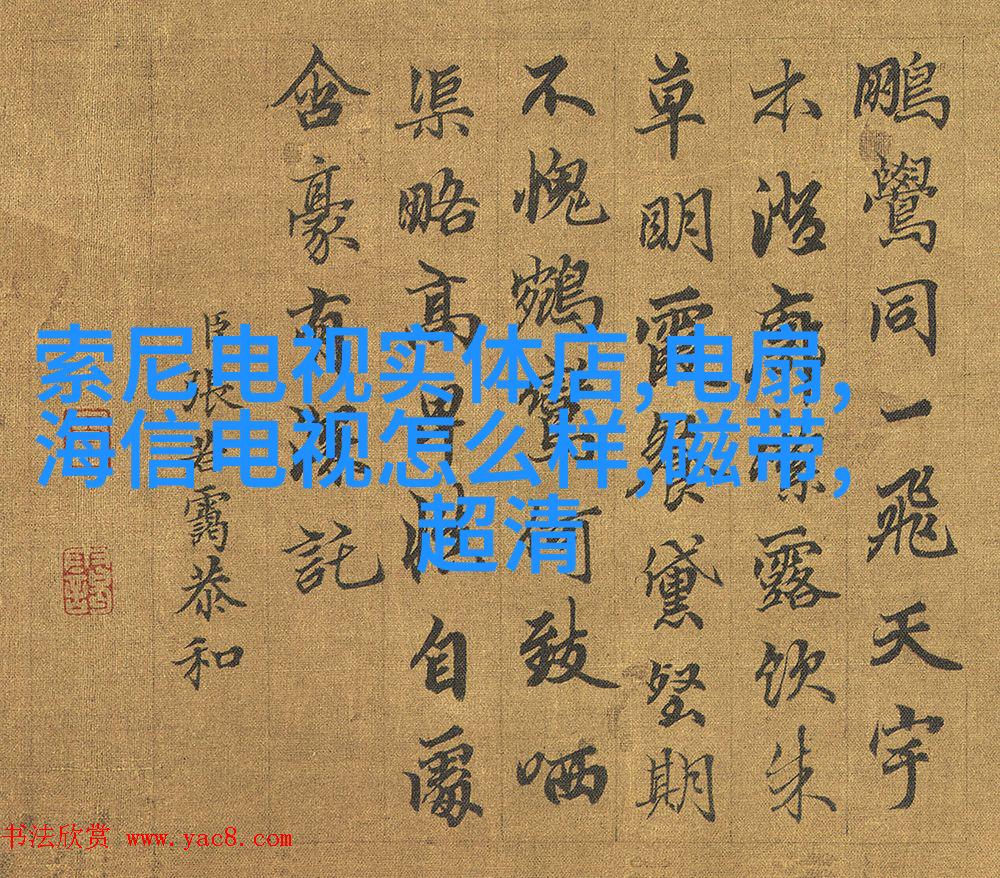 鵬鷽同一飛天宇
木澄露飲朱
草明霄黛堅期
不愧鵷鸞何致哂
渠略高自處
含豪有託
臣張若靄恭和
索尼电视实体店,电扇,
海信电视怎么样,磁带,
超清
书法欣赏 www.yac8.com